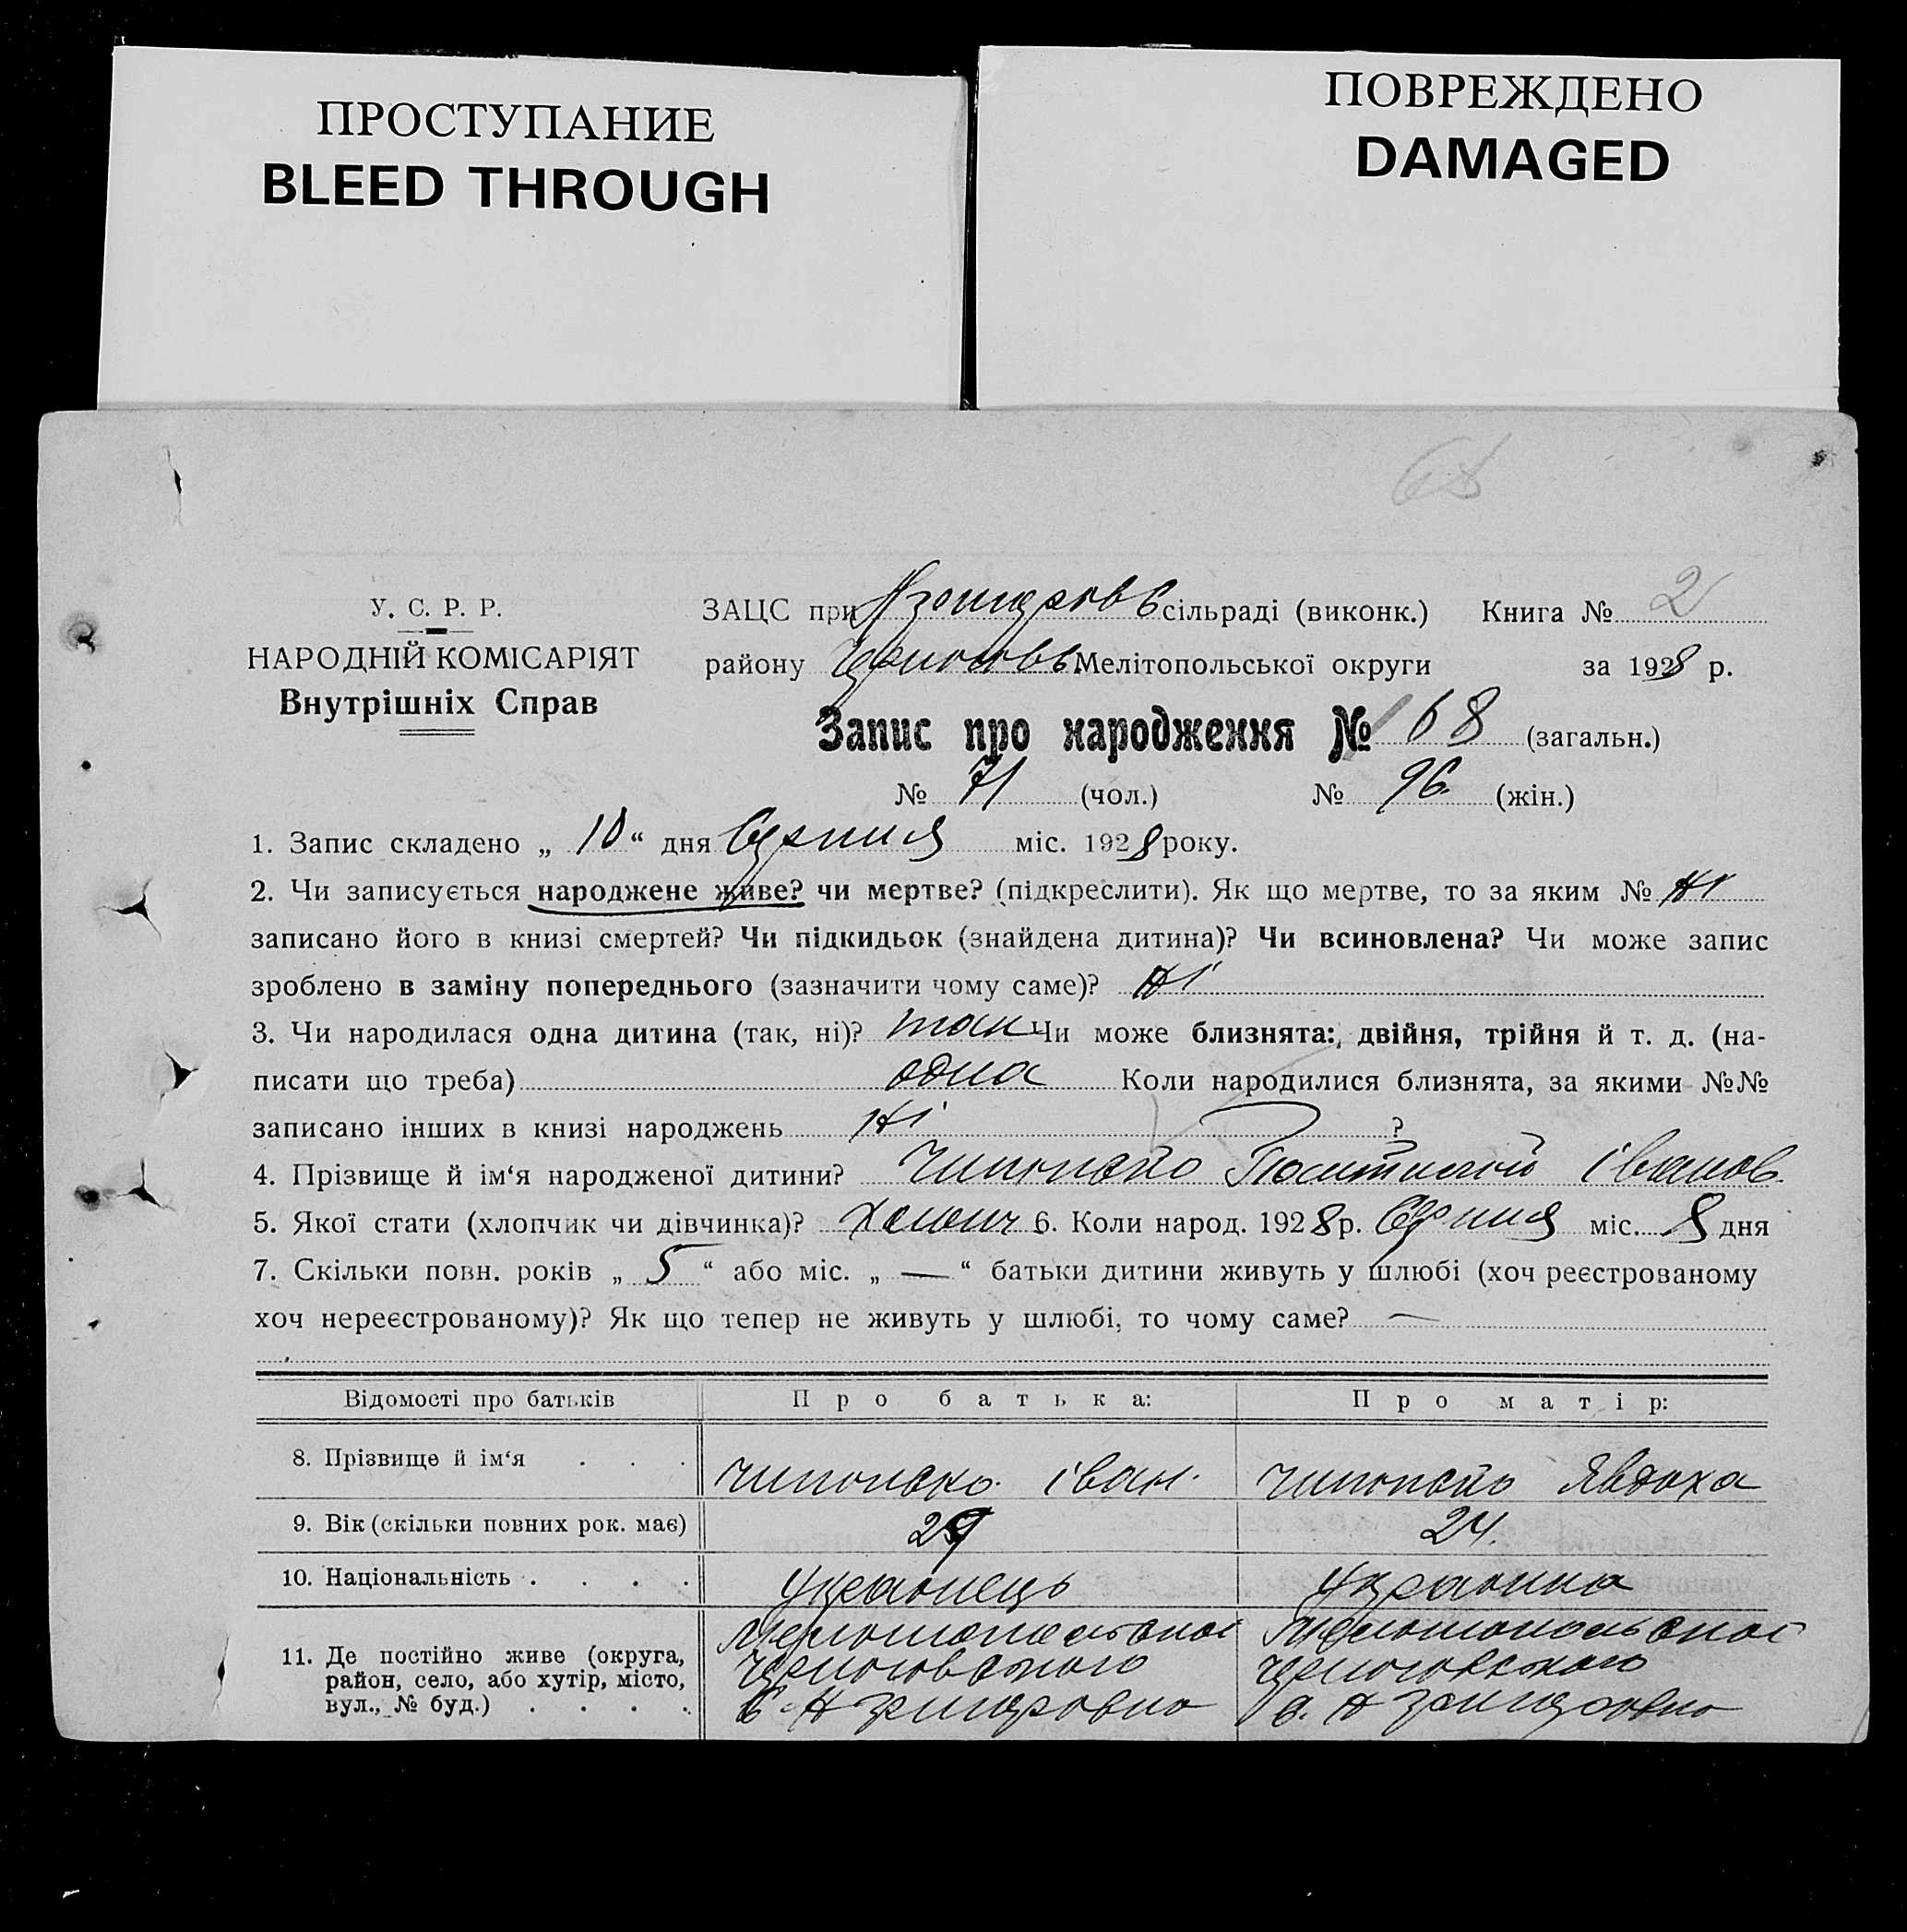 ПРОСТУПАНИЕ
BLEED THROUGH
ПОВРЕЖДЕНО
DAMAGED
68
У. С. Р. Р.
НАРОДНІЙ КОМІСАРІЯТ
Внутрішніх Справ
ЗАЦС при сільраді (виконк.) Книга № 2
району Мелітопольської округи за 1928 р.
Запис про народження № 168 (загальн.)
№ 71 (чол.) № 96 (жін.)
1. Запис складено „ 10 “ дня Серпня міс. 1928 року.
2. Чи записується народжене живе? чи мертве? (підкреслити). Як що мертве, то за яким № Ні
записано його в книзі смертей? Чи підкидьок (знайдена дитина)? Чи всиновлена? Чи може запис
зроблено в заміну попереднього (зазначити чому саме)? Ні
3. Чи народилася одна дитина (так, ні)? так Чи може близнята: двійня, трійня й т. д. (на-
писати що треба) одна Коли народилися близнята, за якими №№
записано інших в книзі народжень Ні ?
4. Прізвище й ім‘я народженої дитини? Іванов.
5. Якої стати (хлопчик чи дівчинка)? Хлопч 6. Коли народ. 1928 р. Серпня міс. 8 дня
7. Скільки повн. років „ 5 “ або міс. „ — “ батьки дитини живуть у шлюбі (хоч реєстрованому
хоч нереєстрованому)? Як що тепер не живуть у шлюбі, то чому саме? —
Відомості про батьків Про батька: Про матір:
8. Прізвище й ім‘я . . . Іван. Явдоха
9. Вік (скільки повних рок. має) 29 24.
10. Національність . . . . Українець Українка
11. Де постійно живе (округа, район, село, або хутір, місто, вул., № буд.) . . . .
Мелітопольської Мелітопольської